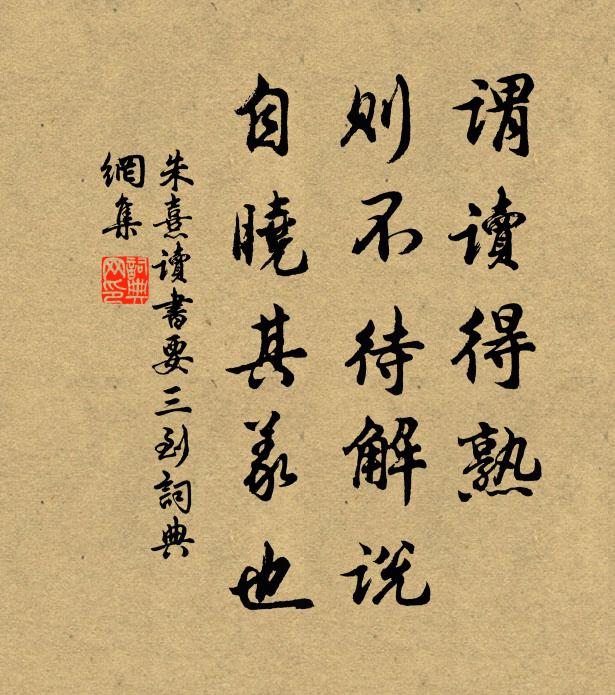 谓读得熟
则不待解说
自曉其义也
朱熹读書要三到詞典
網集
詞典
网印